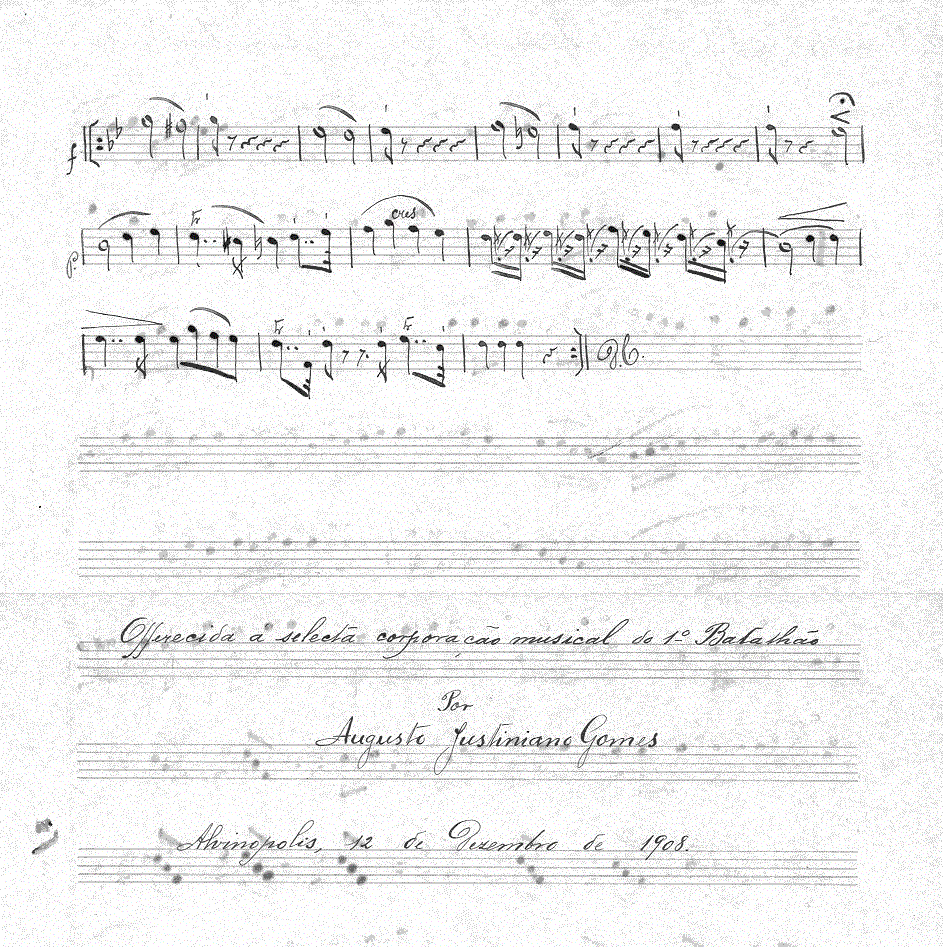 f
p.
cres
D.C.
Offerecida a selecta corporação musical do 1º Batalhão
Por
Augusto Justiniano Gomes
Alvinopolis, 12 de Dezembro de 1908.